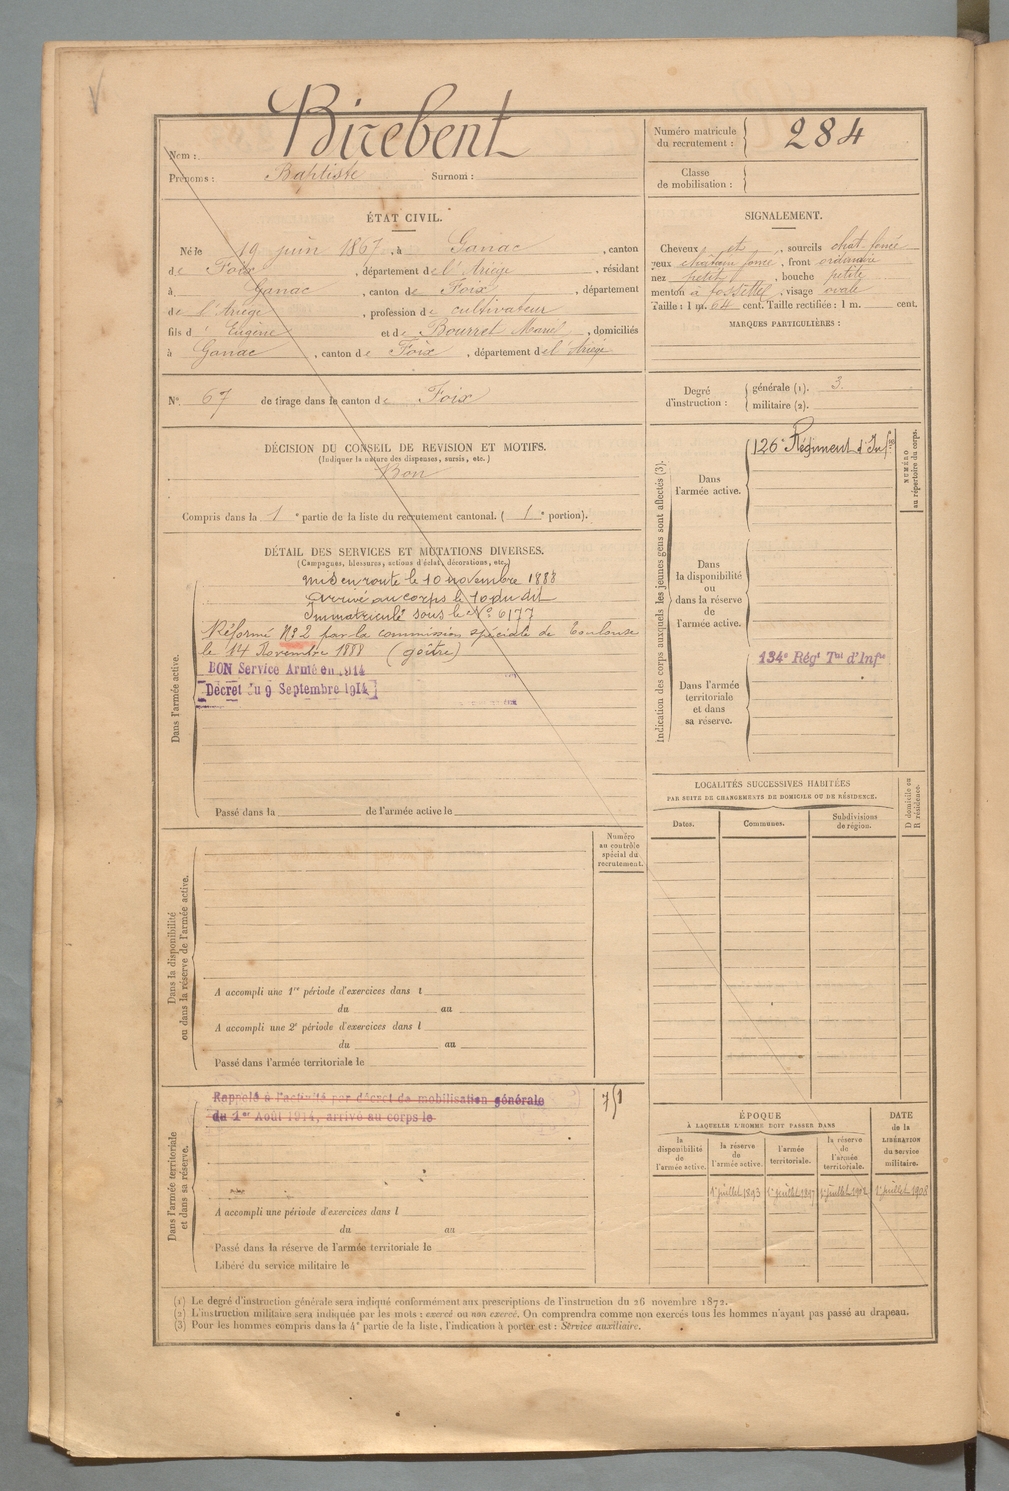 Birebent
Nom :
Prénoms : Baptiste Surnom :
Numéro matricule
du recrutement : 284
Classe
de mobilisation :
ÉTAT CIVIL.
Né le 19 juin 1867, à Ganac, canton
de Foix, département de l'Ariège, résidant
à Ganac, canton de Foix, département
de l'Ariège, profession de cultivateur
fils d' Eugène et de Bourret, domiciliés
à Ganac, canton de Foix, département de l'Ariège
SIGNALEMENT.
Cheveux et sourcils chat. foncé
yeux châtain foncé, front ordinaire
nez petit, bouche petite
menton à fossette, visage ovale
Taille : 1 m. 64 cent. Taille rectifiée : 1 m. cent.
MARQUES PARTICULIÈRES :
N° 67 de tirage dans le canton de Foix
Degré
d'instruction :
générale (1). 3.
militaire (2).
DÉCISION DU CONSEIL DE REVISION ET MOTIFS.
(Indiquer la nature des dispenses, sursis, etc.)
Bon
Compris dans la 1e partie de la liste du recrutement cantonal. ( 1e portion).
DÉTAIL DES SERVICES ET MUTATIONS DIVERSES.
(Campagnes, blessures, actions d'éclat, décorations, etc.)
Dans l'armée active.
Mis en route le 10 novembre 1888
arrivé au corps le 10 du dit
Immatriculé sous le N° 6177
Réformé N° 2 par la commission spéciale de Toulouse
le 14 Novembre 1888 (goître)
BON Service Armé en 1914
Décret du 9 Septembre 1914
Passé dans la de l'armée active le
Indication des corps auxquels les jeunes gens sont affectés (3).
Dans
l'armée active.
126e Régiment d'Infie
NUMÉRO
au répertoire du corps.
Dans
la disponibilité
ou
dans la réserve
de
l'armée active.
134e Régt Tal d'Infie
Dans l'armée
territoriale
et dans
sa réserve.
LOCALITÉS SUCCESSIVES HABITÉES
PAR SUITE DE CHANGEMENTS DE DOMICILE OU DE RÉSIDENCE.
D domicile ou
R résidence.
Dates.
Communes.
Subdivisions
de région.
Numéro
au contrôle
spécial du
recrutement.
Dans la disponibilité
ou dans la réserve de l'armée active.
A accompli une 1re période d'exercices dans l
du au
A accompli une 2e période d'exercices dans l
du au
Passé dans l'armée territoriale le
Dans l'armée territoriale
et dans sa réserve.
Rappelé à l'activité par décret de mobilisation générale
du 1er Août 1914, arrivé au corps le
A accompli une période d'exercices dans l
du au
Passé dans la réserve de l'armée territoriale le
Libéré du service militaire le
ÉPOQUE
À LAQUELLE L'HOMME DOIT PASSER DANS
DATE
de la
LIBÉRATION
du service
militaire.
la
disponibilité
de
l'armée active.
la réserve
de
l'armée active.
l'armée
territoriale.
la réserve
de
l'armée
territoriale.
1er juillet 1893 1er juillet 1897 1er juillet 1902 1er juillet 1908
(1) Le degré d'instruction générale sera indiqué conformément aux prescriptions de l'instruction du 26 novembre 1872.
(2) L'instruction militaire sera indiquée par les mots : exercé ou non exercé. On comprendra comme non exercés tous les hommes n'ayant pas passé au drapeau.
(3) Pour les hommes compris dans la 4e partie de la liste, l'indication à porter est : Service auxiliaire.